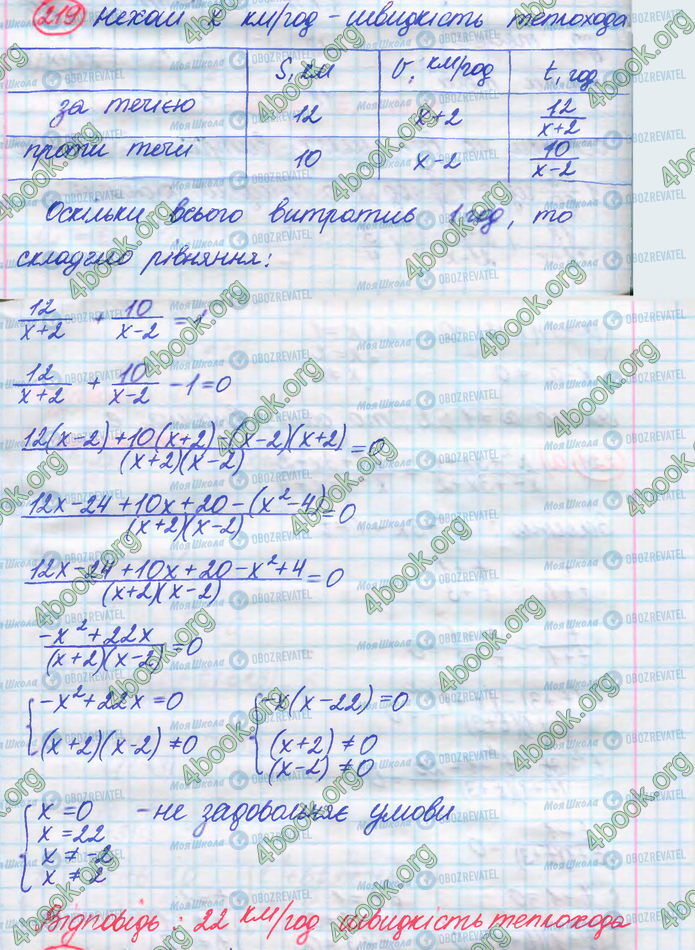 219 Нехай x км/год – швидкість теплохода
S, км v, км/год t, год
за течією 12 x+2 12/(x+2)
проти течії 10 x-2 10/(x-2)
Оскільки всього витратив 1 год, то
складемо рівняння:
12/(x+2) + 10/(x-2) = 1
12/(x+2) + 10/(x-2) - 1 = 0
(12(x-2)+10(x+2)-(x-2)(x+2))/((x+2)(x-2)) = 0
(12x-24+10x+20-(x²-4))/((x+2)(x-2)) = 0
(12x-24+10x+20-x²+4)/((x+2)(x-2)) = 0
(-x²+22x)/((x+2)(x-2)) = 0
{ -x²+22x=0 { -x(x-22)=0
(x+2)(x-2)≠0 (x+2)≠0
(x-2)≠0
{ x=0 – не задовольняє умови
x=22
x≠-2
x≠2
Відповідь: 22 км/год швидкість теплохода
4book.org
Моя Школа
OBOZREVATEL